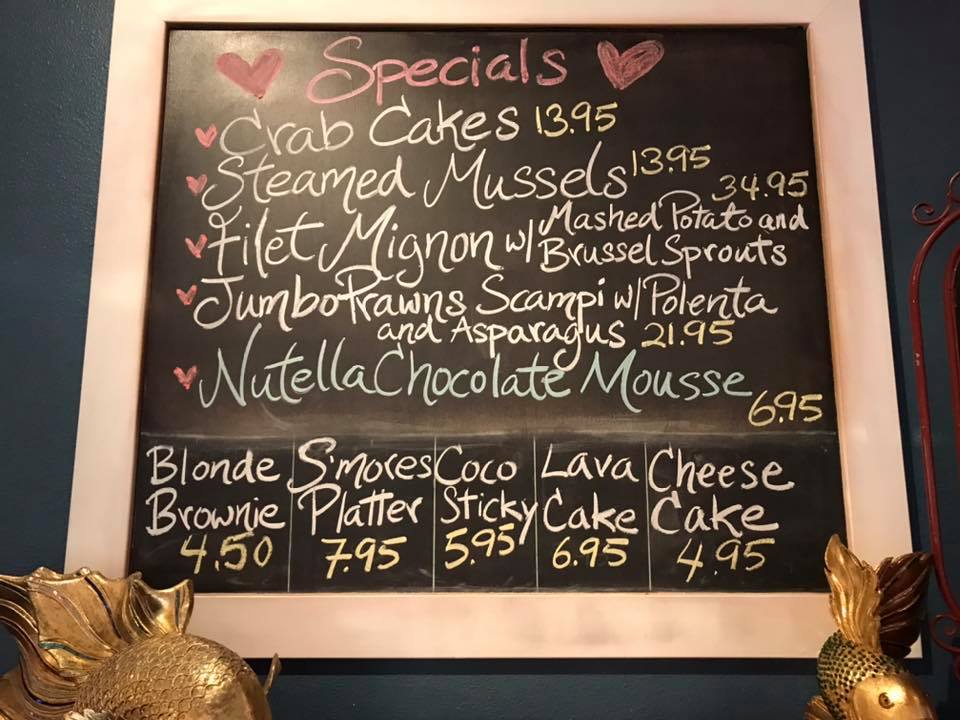 Specials
Crab Cakes 13.95
Steamed Mussels 13.95
34.95
Filet Mignon w/ Mashed Potato and
Brussel Sprouts
Jumbo Prawns Scampi w/ Polenta
and Asparagus 21.95
Nutella Chocolate Mousse
6.95
Blonde
Brownie
4.50
S'mores
Platter
7.95
Coco
Sticky
5.95
Lava
Cake
6.95
Cheese
Cake
4.95